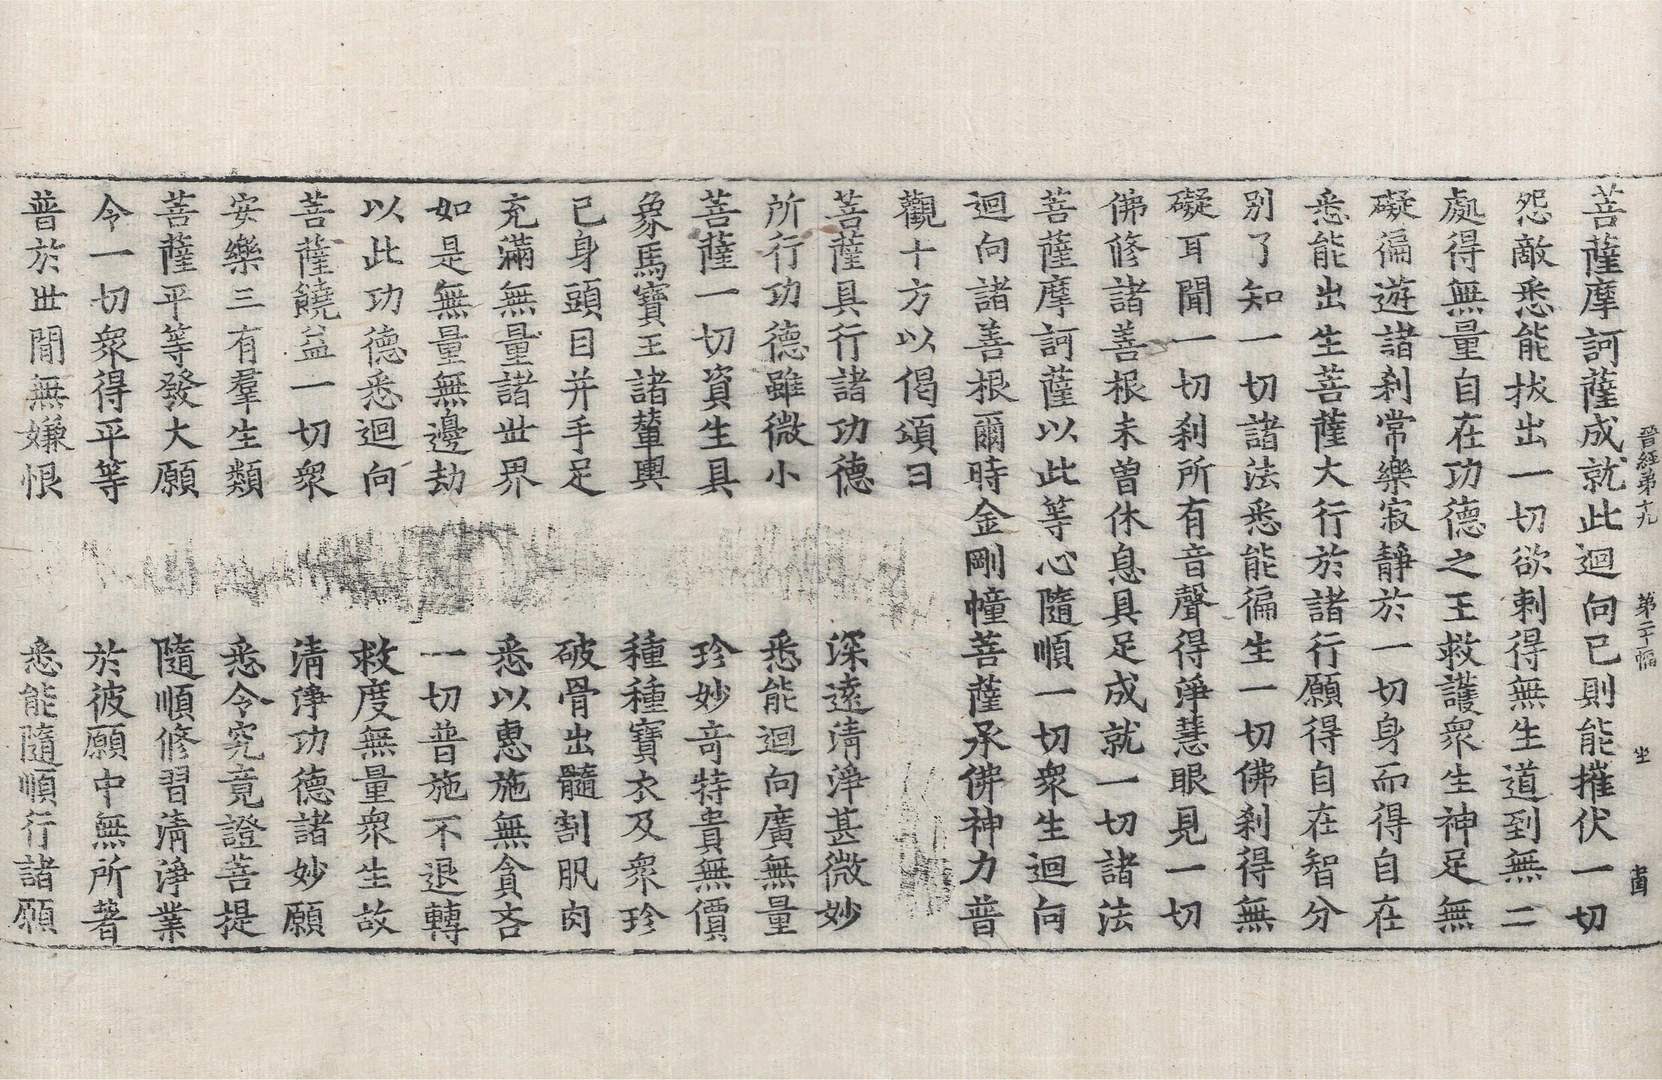 晉經第十九 第二十幅 坐
菩薩摩訶薩成就此迴向已則能摧伏一切
怨敵悉能拔出一切欲刺得無生道到無二
處得無量自在功德之王救護衆生神足無
礙徧遊諸刹常樂寂靜於一切身而得自在
悉能出生菩薩大行於諸行願得自在智分
別了知一切諸法悉能徧生一切佛刹得無
礙耳聞一切刹所有音聲得淨慧眼見一切
佛修諸善根未曾休息具足成就一切諸法
菩薩摩訶薩以此等心隨順一切衆生迴向
迴向諸善根爾時金剛幢菩薩承佛神力普
觀十方以偈頌曰
菩薩具行諸功德 深遠清淨甚微妙
所行功德雖微小 悉能迴向廣無量
菩薩一切資生具 珍妙奇特貴無價
象馬寶王諸輦輿 種種寶衣及衆珍
已身頭目并手足 破骨出髓割肌肉
充滿無量諸世界 悉以惠施無貪吝
如是無量無邊劫 一切普施不退轉
以此功德悉迴向 救度無量衆生故
菩薩饒益一切衆 清淨功德諸妙願
安樂三有羣生類 悉令究竟證菩提
菩薩平等發大願 隨順修習清淨業
令一切衆得平等 於彼願中無所著
普於世間無嫌恨 悉能隨順行諸願